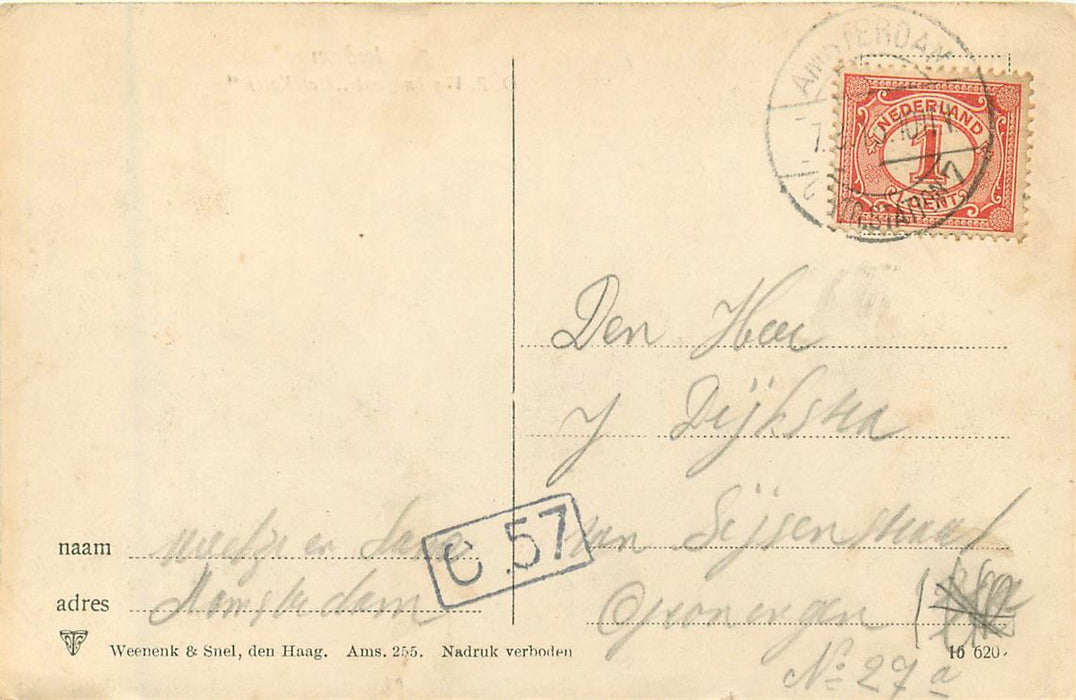 AMSTERDAM
NEDERLAND
1
CENT
Den Heer
J Dijkstra
van Sijsenstraat
Groningen
No 27a
C.57
naam
adres Amsterdam
Weenenk & Snel, den Haag. Ams. 255. Nadruk verboden
16 620